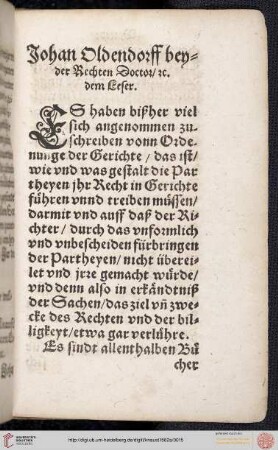 Johan Oldendorff bey-
der Rechten Doctor/ ꝛc.
dem Leser.
ES haben bißher viel
sich angenommen zu-
schreiben vonn Orde-
nunge der Gerichte / das ist/
wie vnd was gestalt die Par
theyen jhr Recht in Gerichte
führen vnnd treiben müssen/
darmit vnd auff daß der Ri-
chter / durch das vnformlich
vnd vnbescheiden fürbringen
der Partheyen/ nicht überei-
let vnd jrre gemacht würde/
vnd denn also in erkändtniß
der Sachen/das ziel vñ zwe-
cke des Rechten vnd der bil-
ligkeyt/etwa gar verlühre.
Es sindt allenthalben Bü
cher
http://digi.ub.uni-heidelberg.de/diglit/knaust1582a/0015